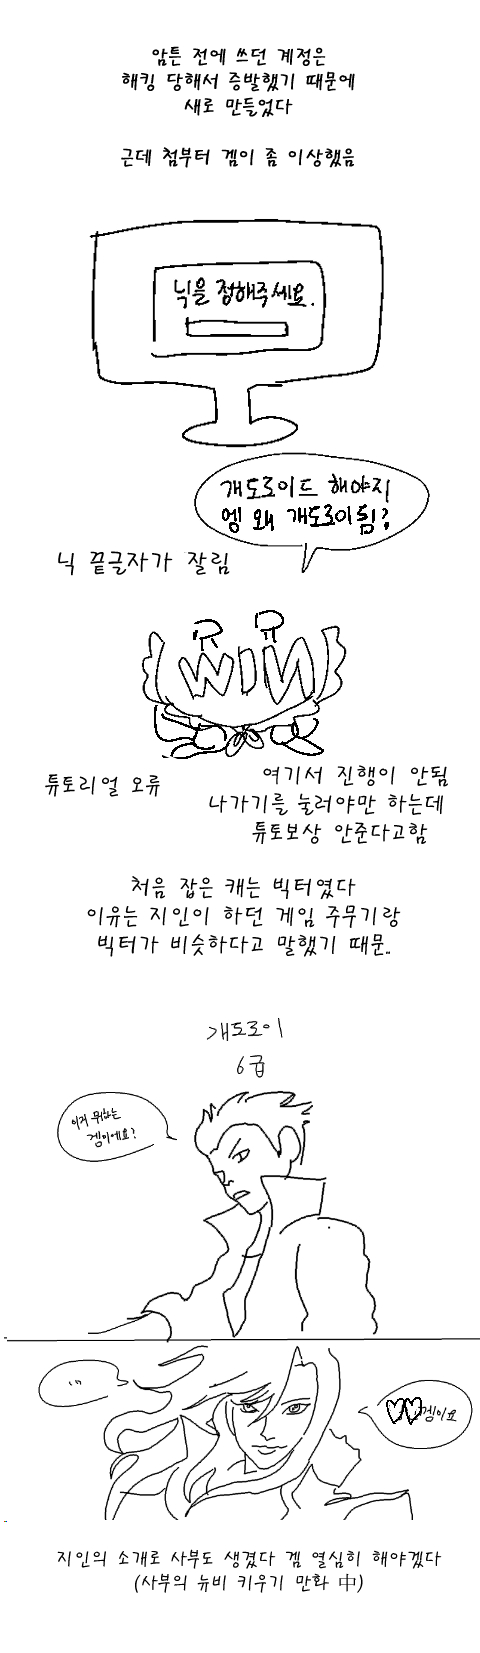 암튼 전에 쓰던 계정은
해킹 당해서 증발했기 때문에
새로 만들었다
근데 첨부터 겜이 좀 이상했음
닉을 정해주세요.
개도로이드 해야지
엥 왜 개도로이됨?
닉 끝글자가 잘림
WIN
튜토리얼 오류
여기서 진행이 안됨
나가기를 눌러야만 하는데
튜토보상 안준다고함
처음 잡은 캐는 빅터였다
이유는 지인이 하던 게임 주무기랑
빅터가 비슷하다고 말했기 때문..
개도로이
6급
이거 뭐하는
겜이에요?
♡♡겜이요
지인의 소개로 사부도 생겼다 겜 열심히 해야겠다
(사부의 뉴비 키우기 만화 中)